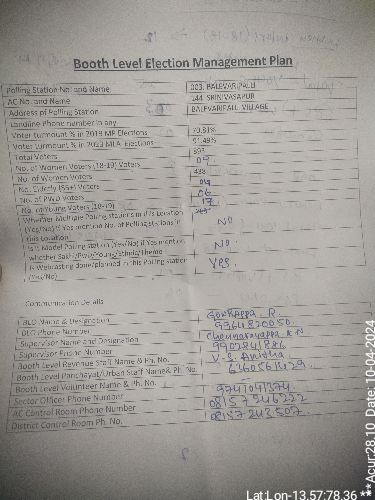 Booth Level Election Management Plan
Polling Station No. and Name 003. BALEVARIPALLI
AC No. and Name 144 SRINIVASAPUR
Address of Polling Station BALEVARIPALLI VILLAGE
Landline Phone number in any
Voter turnount % in 2019 MP Elections 70.81%
Voter turnount % in 2023 MLA Elections 91.49%
Total Voters 893
No. of Women Voters (18-19) Voters 09
No. of Women Voters 438
No. Elderly (85+) Voters
No. of PWD Voters 06
No. of Young Voters (18-19) 17
Whether Multiple Polling stations in this Location
(Yes/No) If Yes mention No. of Polling stations in NO
this Location
Is it Model Polling station (Yes/No) if Yes mention NO
whether Sakhi/Pwd/Young/Ethnic/Theme
Is Webcasting done/planned in this Polling station Yes.
(Yes/No)
Communication Details
BLO Name & Designation Gonkappa. R.
BLO Phone Number 9964820050.
Supervisor Name and Designation Chennarayappa K N
Supervisor Phone Number 9902841886
Booth Level Revenue Staff Name & Ph. No. V. S. Anitha
Booth Level Panchayat/Urban Staff Name& Ph. No. 6360561429.
Booth Level Volunteer Name & Ph. No.
Sector Officer Phone Number 9741041374.
AC Control Room Phone Number 08157246222
District Control Room Ph. No. 08157243507.
Lat:Lon-13.57:78.36 ***Acur:28.10 Date:10-04-2024